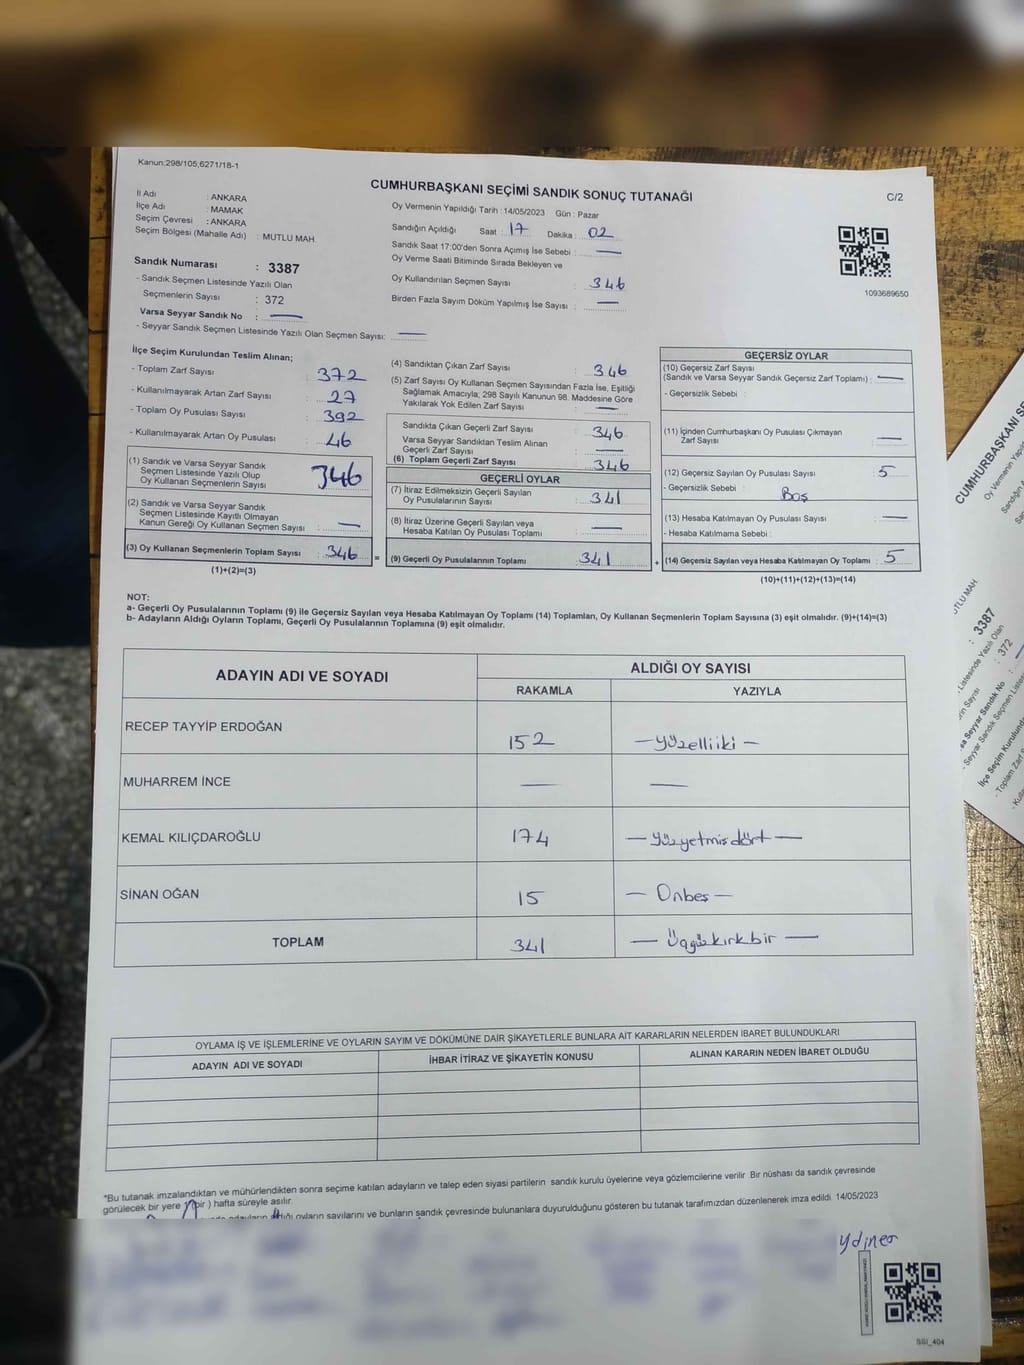 Kanun:298/105;6271/18-1
CUMHURBAŞKANI SEÇİMİ SANDIK SONUÇ TUTANAĞI
C/2
İl Adı : ANKARA
İlçe Adı : MAMAK
Seçim Çevresi : ANKARA
Seçim Bölgesi (Mahalle Adı) : MUTLU MAH.
Oy Vermenin Yapıldığı Tarih : 14/05/2023 Gün : Pazar
Sandığın Açıldığı Saat : 17 Dakika : 02
Sandık Saat 17:00'den Sonra Açımış İse Sebebi : —
Oy Verme Saati Bitiminde Sırada Bekleyen ve
Oy Kullandırılan Seçmen Sayısı : 346
Birden Fazla Sayım Döküm Yapılmış İse Sayısı : —
1093689650
Sandık Numarası : 3387
- Sandık Seçmen Listesinde Yazılı Olan
Seçmenlerin Sayısı : 372
Varsa Seyyar Sandık No : —
- Seyyar Sandık Seçmen Listesinde Yazılı Olan Seçmen Sayısı: —
İlçe Seçim Kurulundan Teslim Alınan;
- Toplam Zarf Sayısı : 372
- Kullanılmayarak Artan Zarf Sayısı : 27
- Toplam Oy Pusulası Sayısı : 392
- Kullanılmayarak Artan Oy Pusulası : 46
(1) Sandık ve Varsa Seyyar Sandık
Seçmen Listesinde Yazılı Olup
Oy Kullanan Seçmenlerin Sayısı : 346
(2) Sandık ve Varsa Seyyar Sandık
Seçmen Listesinde Kayıtlı Olmayan
Kanun Gereği Oy Kullanan Seçmen Sayısı : —
(3) Oy Kullanan Seçmenlerin Toplam Sayısı : 346 =
(1)+(2)=(3)
(4) Sandıktan Çıkan Zarf Sayısı : 346
(5) Zarf Sayısı Oy Kullanan Seçmen Sayısından Fazla İse, Eşitliği
Sağlamak Amacıyla; 298 Sayılı Kanunun 98. Maddesine Göre
Yakılarak Yok Edilen Zarf Sayısı : —
Sandıkta Çıkan Geçerli Zarf Sayısı : 346
Varsa Seyyar Sandıktan Teslim Alınan
Geçerli Zarf Sayısı : —
(6) Toplam Geçerli Zarf Sayısı : 346
GEÇERLİ OYLAR
(7) İtiraz Edilmeksizin Geçerli Sayılan
Oy Pusulalarının Sayısı : 341
(8) İtiraz Üzerine Geçerli Sayılan veya
Hesaba Katılan Oy Pusulası Toplamı : —
(9) Geçerli Oy Pusulalarının Toplamı : 341 +
GEÇERSİZ OYLAR
(10) Geçersiz Zarf Sayısı
(Sandık ve Varsa Seyyar Sandık Geçersiz Zarf Toplamı) : —
- Geçersizlik Sebebi :
(11) İçinden Cumhurbaşkanı Oy Pusulası Çıkmayan
Zarf Sayısı : —
(12) Geçersiz Sayılan Oy Pusulası Sayısı : 5
- Geçersizlik Sebebi : Boş
(13) Hesaba Katılmayan Oy Pusulası Sayısı : —
- Hesaba Katılmama Sebebi :
(14) Geçersiz Sayılan veya Hesaba Katılmayan Oy Toplamı : 5
(10)+(11)+(12)+(13)=(14)
NOT:
a- Geçerli Oy Pusulalarının Toplamı (9) ile Geçersiz Sayılan veya Hesaba Katılmayan Oy Toplamı (14) Toplamları, Oy Kullanan Seçmenlerin Toplam Sayısına (3) eşit olmalıdır. (9)+(14)=(3)
b- Adayların Aldığı Oyların Toplamı, Geçerli Oy Pusulalarının Toplamına (9) eşit olmalıdır.
ADAYIN ADI VE SOYADI
ALDIĞI OY SAYISI
RAKAMLA YAZIYLA
RECEP TAYYİP ERDOĞAN 152 —yüzelliiki—
MUHARREM İNCE — —
KEMAL KILIÇDAROĞLU 174 —yüzyetmişdört—
SİNAN OĞAN 15 — Onbeş —
TOPLAM 341 — Üçyüzkırkbir —
OYLAMA İŞ VE İŞLEMLERİNE VE OYLARIN SAYIM VE DÖKÜMÜNE DAİR ŞİKAYETLERLE BUNLARA AİT KARARLARIN NELERDEN İBARET BULUNDUKLARI
ADAYIN ADI VE SOYADI İHBAR İTİRAZ VE ŞİKAYETİN KONUSU ALINAN KARARIN NEDEN İBARET OLDUĞU
*Bu tutanak imzalandıktan ve mühürlendikten sonra seçime katılan adayların ve talep eden siyasi partilerin sandık kurulu üyelerine veya gözlemcilerine verilir. Bir nüshası da sandık çevresinde
görülecek bir yere 1 (bir ) hafta süreyle asılır.
adayların aldığı oyların sayılarını ve bunların sandık çevresinde bulunanlara duyurulduğunu gösteren bu tutanak tarafımızdan düzenlenerek imza edildi. 14/05/2023
ydiner
CUMHURBAŞKANI S
Oy Vermenin Yapıldığı
Sandığın
UTLU MAH
: 3387
Listesinde Yazılı Olan
: 372
sa Seyyar Sandık No
- Seyyar Sandık Seçmen
İlçe Seçim Kurulund
- Toplam Zarf